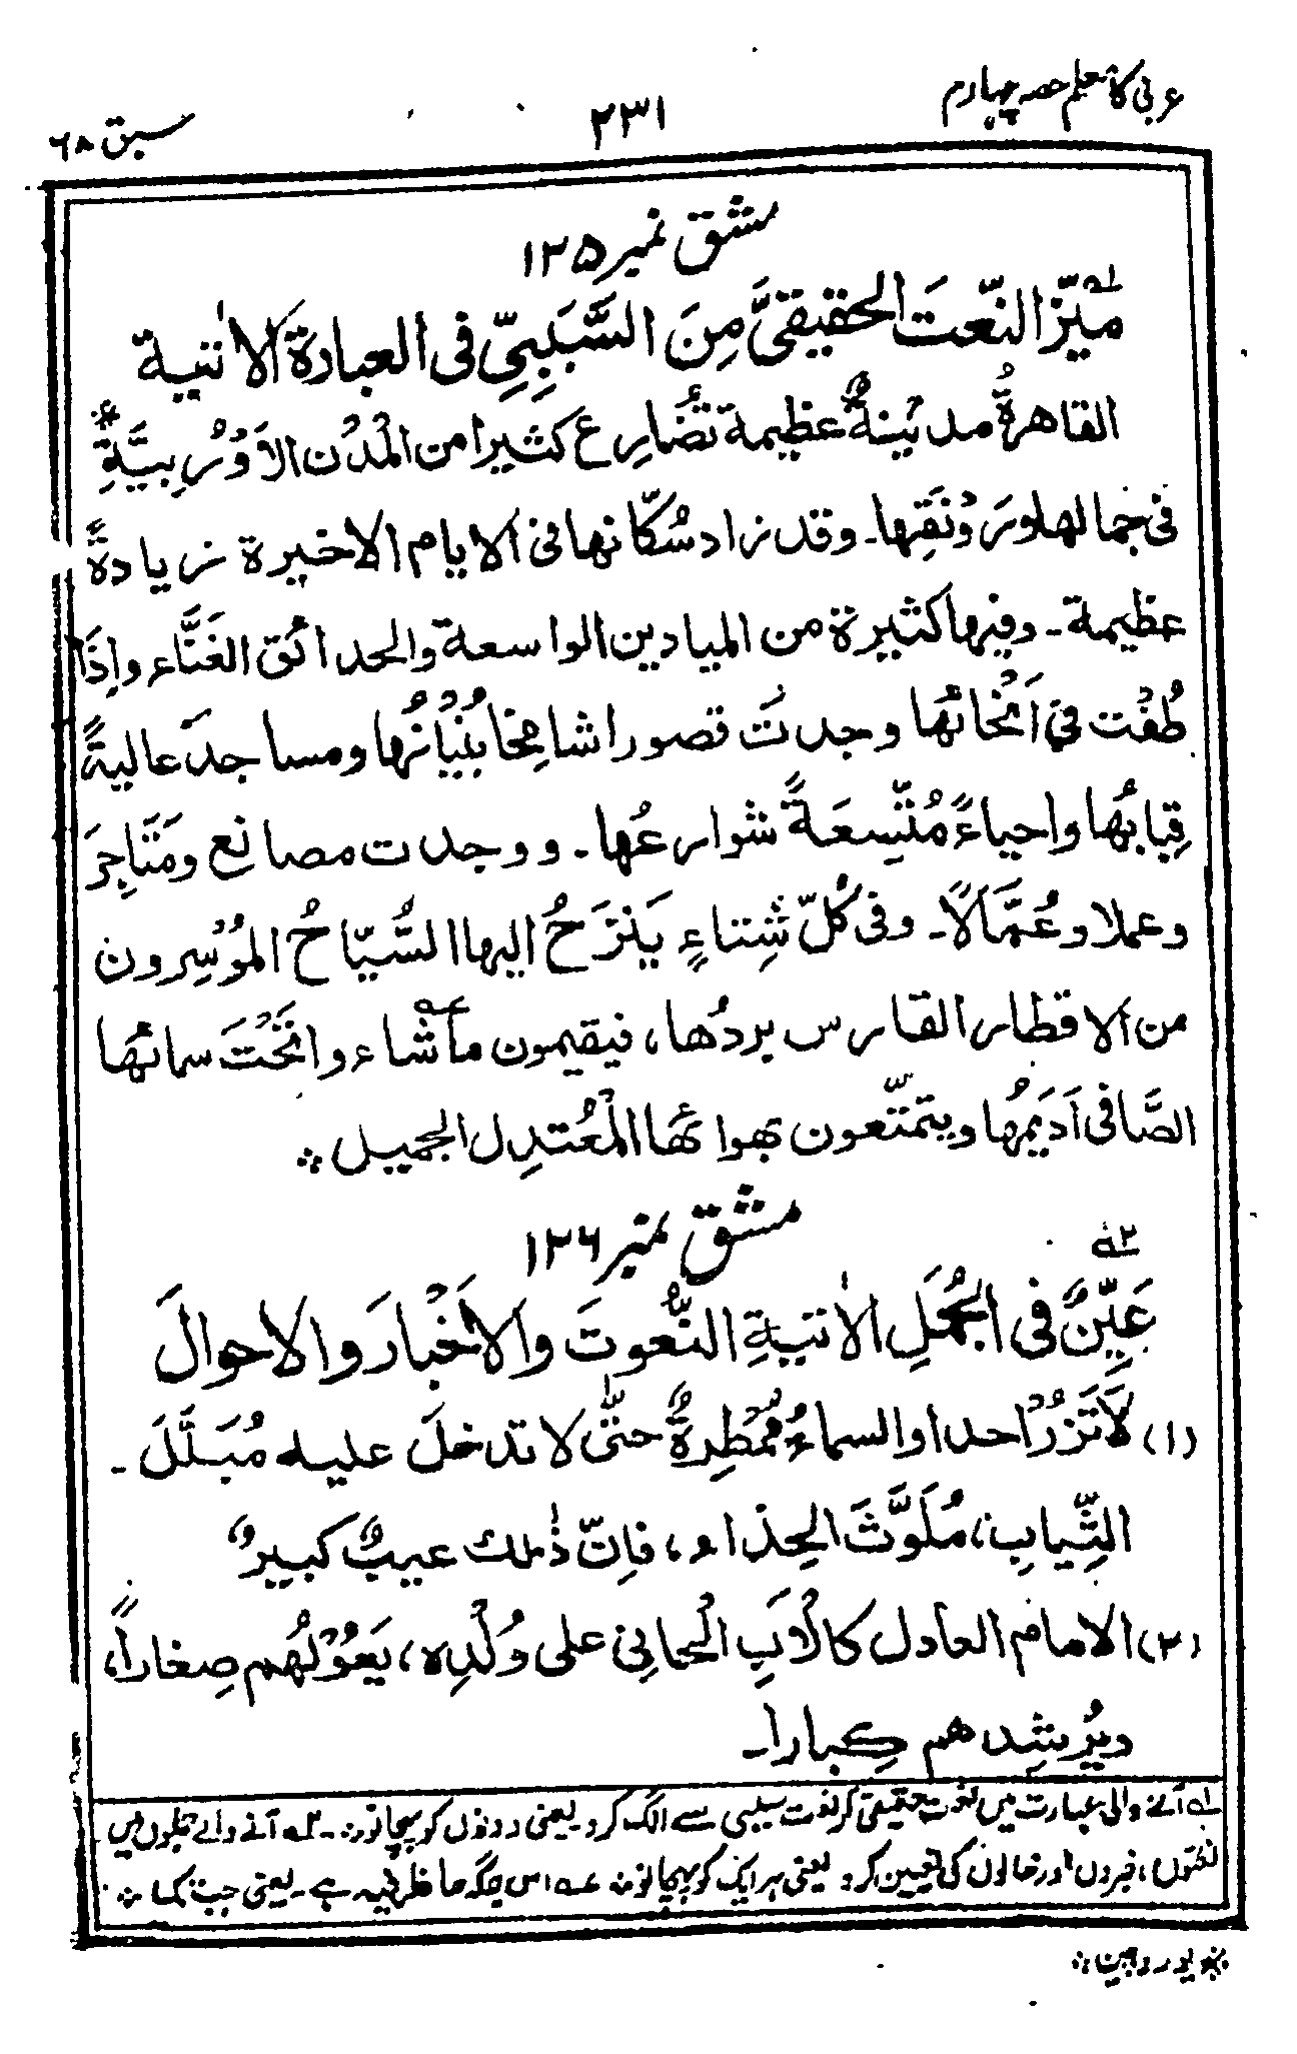 عربی کا معلم حصہ چہارم
۲۳۱
سبق ۶۸
مشق نمبر ۱۲۵
میّز النّعتَ الحقیقیَّ مِنَ السَّبَبِیِّ فی العبارة الاٰتیة ؎۱
القاهرةُ مدینةٌ عظیمة تُضارِع کثیرا من المُدُن الاَوْرُبِیَّةِ*
فی جمالها ورَوْنَقِها۔ وقد زاد سُکّانها فی الایام الاخیرة زیادةً
عظیمة۔ وفیها کثیرة من المیادین الواسعة والحدائق الغَنَّاء واِذَا
طُفْت فی اَنْحَائها وجدتَ قصورا شامِخا بُنْیَانُها ومساجدَ عالیةً
قِبابُها واحیاءً مُتَّسِعَةً شوارعُها۔ ووجدت مصانع ومَتَاجِرَ
وعملا وعُمَّالًا۔ وفی کُلّ شِتاءٍ یَنْزَحُ الیها السُّیّاحُ المُوْسِرون
من الاقطار القارس بردُها، فیقیمون ما شاءوا تَحْتَ سمائها
الصَّافی اَدَیمُها ویتمتّعون بهوائها المُعْتدِل الجمیل ؞
مشق نمبر ۱۲۶
عَیِّنْ فی الجُمَلِ الاٰتیةِ النُّعوتَ والاَخْبارَ والاحوالَ ؎۲
(۱) لَا تَزُرْ احدا والسماءُ مُمْطِرةٌ حتّٰی لا تدخلَ علیه مُبَلَّلَ ۔
الثِّیابِ، مُلَوَّثَ الحِذاء، فاِنّ ذٰلك عیبٌ کبیرٌ
(۲) الامام العادل کالْاَبِ الْحانِی علی وُلْدِه، یَعُوْلُهُم صِغاراً،
ویُرشِدهم کِبارا۔
؎۱ آنے والی عبارت میں نعت حقیقی کو نعت سببی سے الگ کرو۔ یعنی دونوں کو پہچانو۔ ؎۲ آنے والے جملوں میں
نعتوں، خبروں اور حالوں کی تعیین کرو یعنی ہر ایک کو پہچانو؞ ؎ اس جگہ ما ظرفیہ ہے۔ یعنی جب تک ؞
* یوروپین ؞